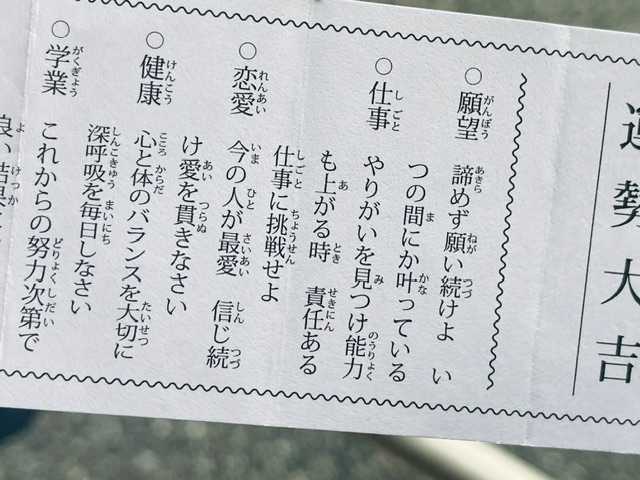 運勢大吉
○願望 諦めず願い続けよ い
つの間にか叶っている
○仕事 やりがいを見つけ能力
も上がる時 責任ある
仕事に挑戦せよ
○恋愛 今の人が最愛 信じ続
け愛を貫きなさい
○健康 心と体のバランスを大切に
深呼吸を毎日しなさい
○学業 これからの努力次第で
良い結果